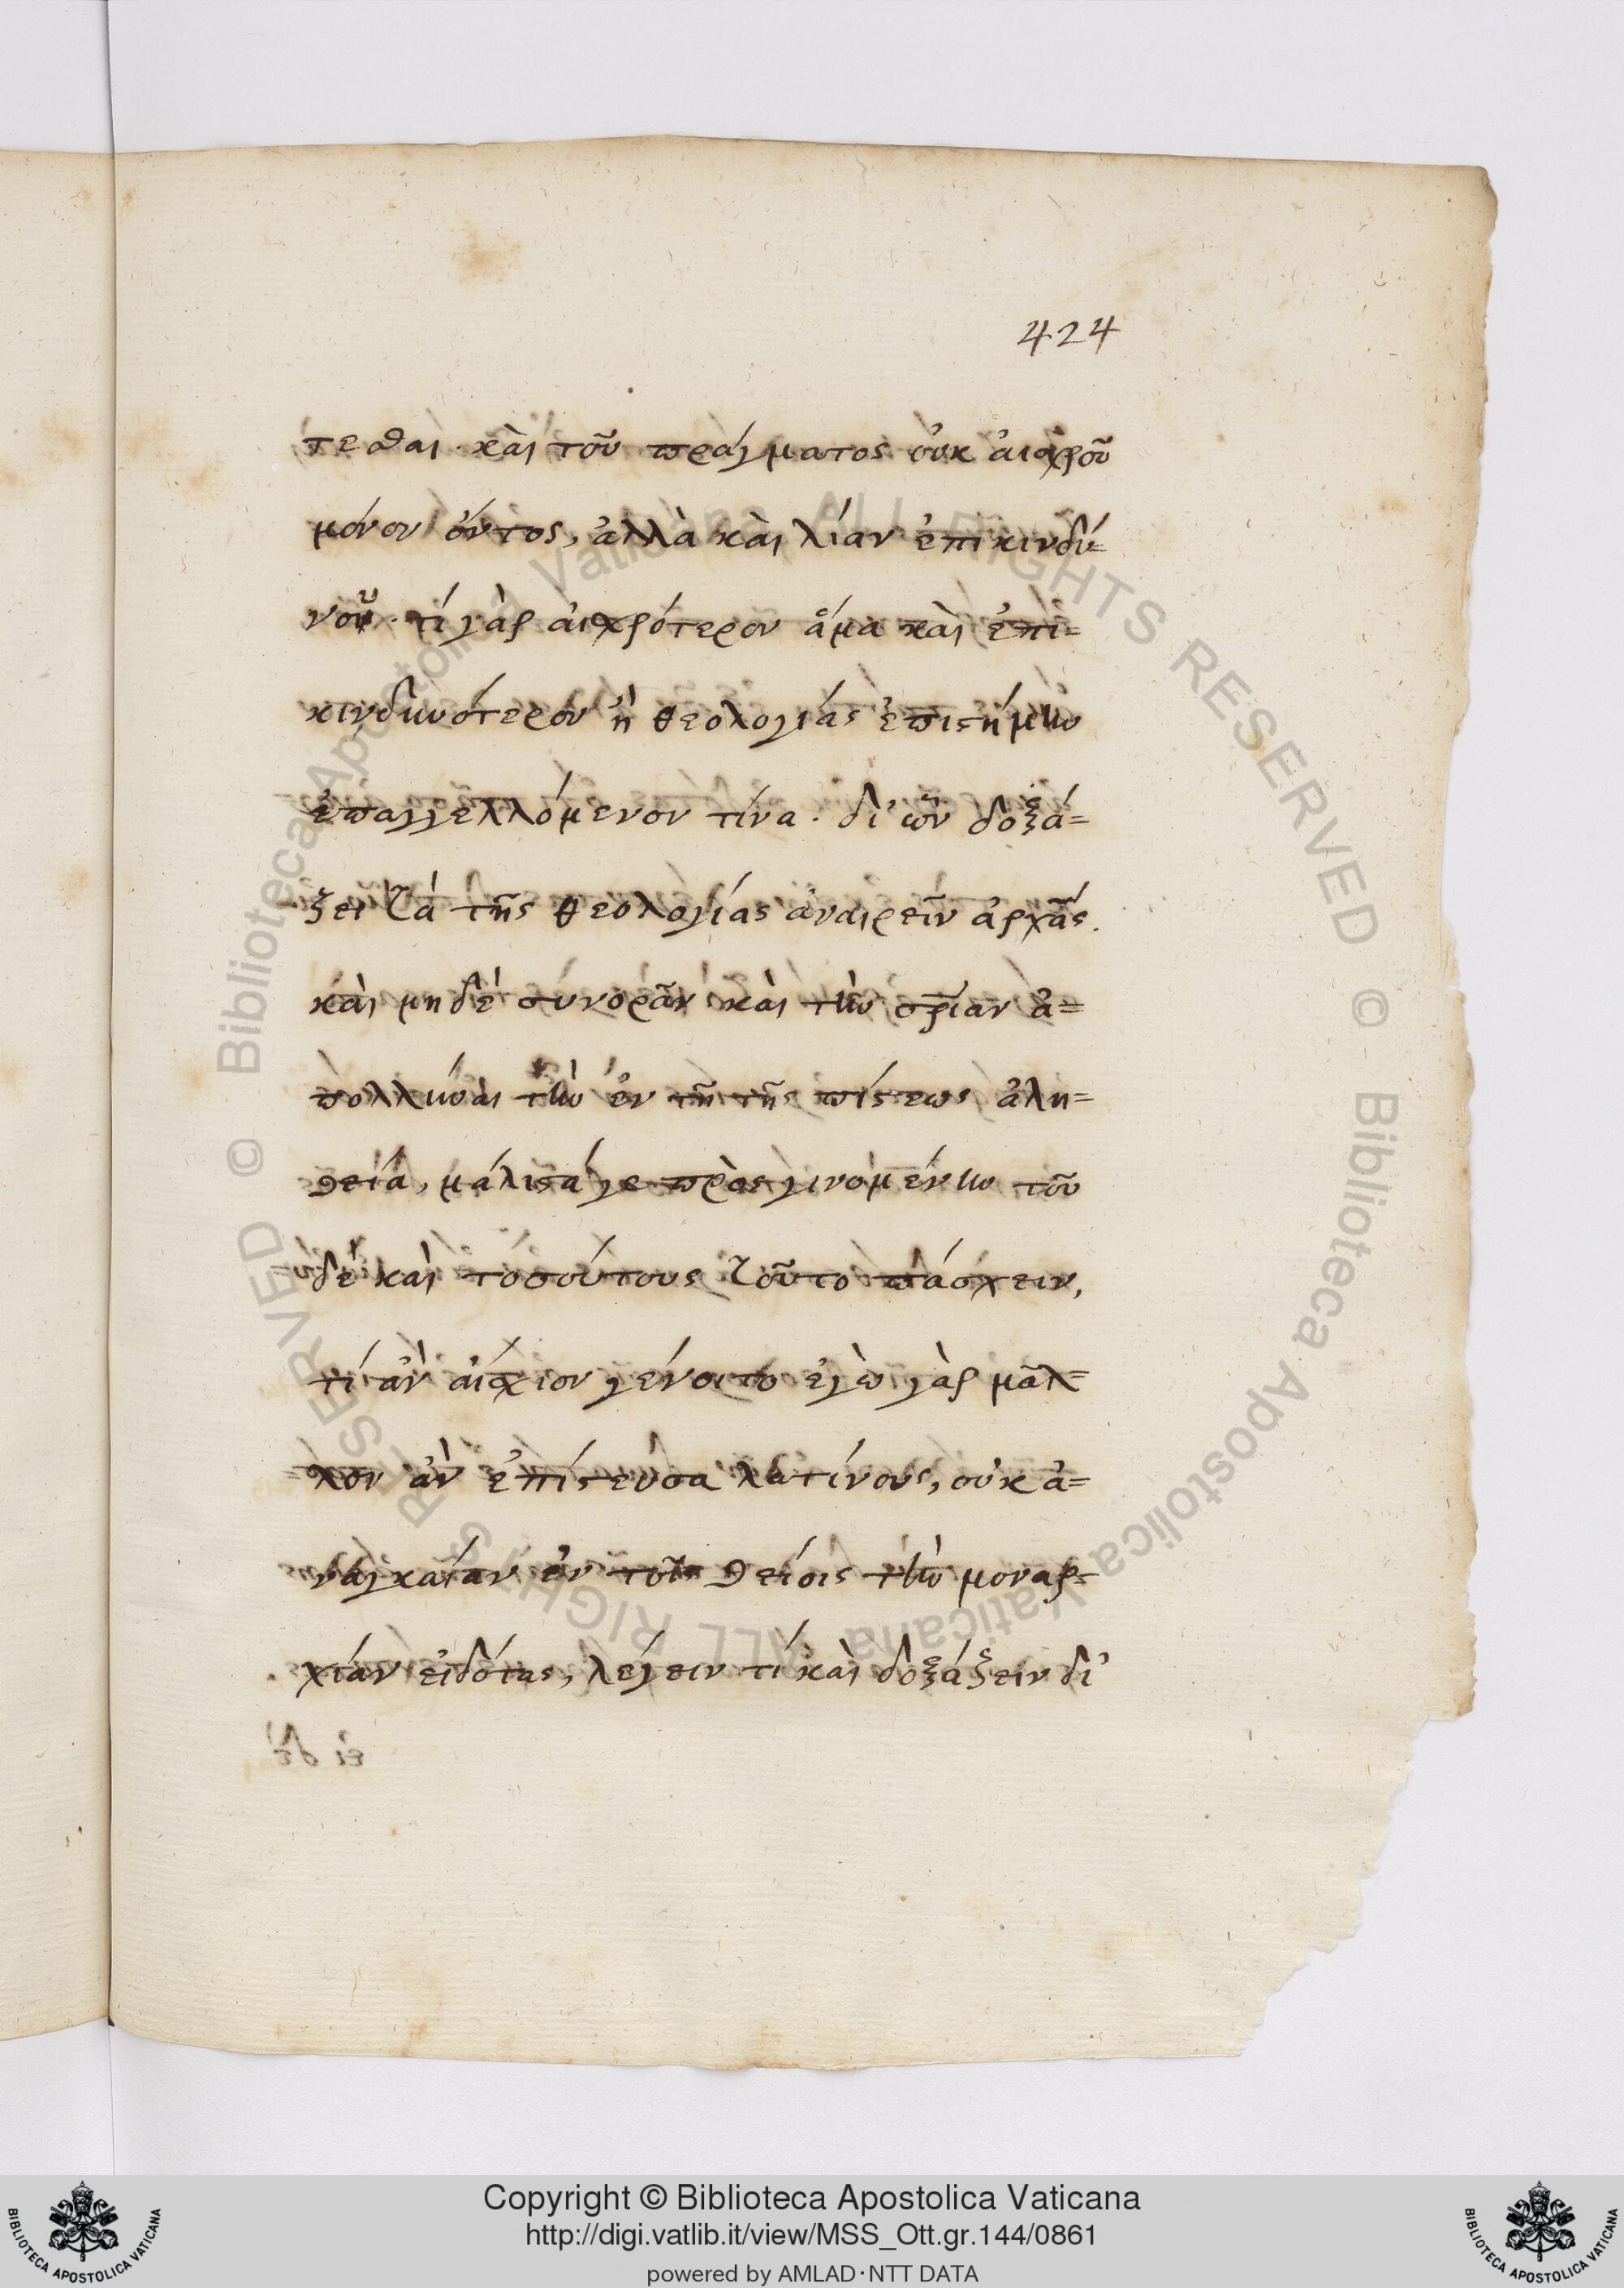 424
τεσθαι. καὶ τοῦ πράγματος οὐκ αἰσχροῦ
μόνον ὄντος, ἀλλὰ καὶ λίαν ἐπικινδύ=
νου. τί γὰρ αἰσχρότερον ἅμα καὶ ἐπι=
κινδυνότερον ἢ θεολογίας ἐπιστήμην
ἐπαγγελλόμενον τίνα. δι' ὧν δοξά=
ζει τὰ τῆς θεολογίας ἀναιρεῖν ἀρχὰς.
καὶ μηδὲ συνορᾶν καὶ τὴν σρίαν ἀ=
πολλύναι τὴν ἐν τῇ τῆς πίστεως ἀλη=
θεία, μάλιστά γε προσγινομένην τοῦ
δὲ καὶ τοσούτους τοῦτο πάσχειν,
τί ἂν αἴσχιον γένοιτο ἐγὼ γὰρ μᾶλ=
λον ἂν ἐπίστευσα λατίνους, οὐκ ἀ=
ναγκαίαν ἐν τοῖς θείοις τὴν μοναρ=
χίαν εἰδότας, λέγειν τί καὶ δοξάζειν δι'
εἰ δὲ
Copyright © Biblioteca Apostolica Vaticana
http://digi.vatlib.it/view/MSS_Ott.gr.144/0861
powered by AMLAD·NTT DATA